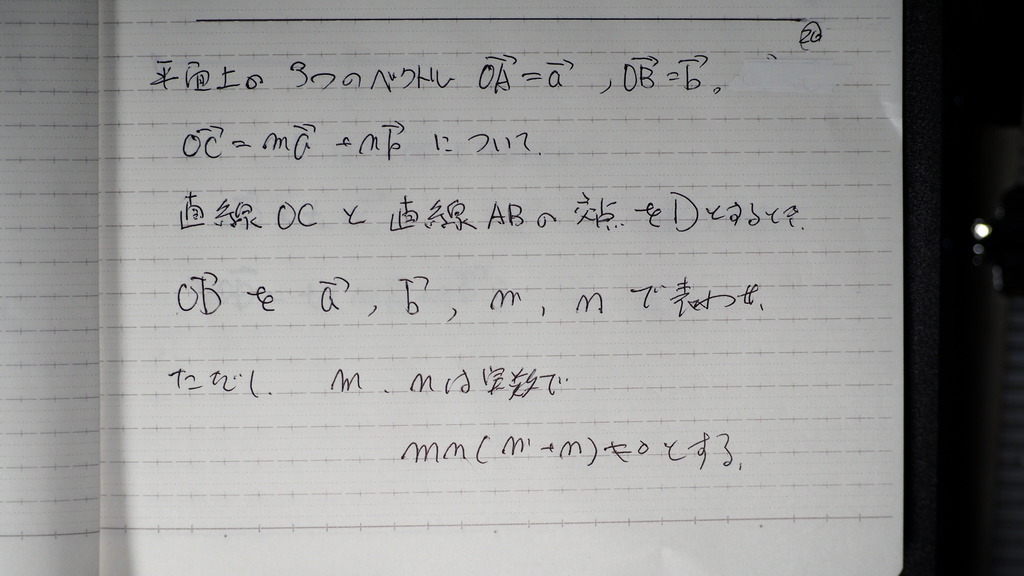 20
平面上の3つのベクトル $\overrightarrow{OA}=\vec{a}$ , $\overrightarrow{OB}=\vec{b}$ 。
$\overrightarrow{OC}=m\vec{a}+n\vec{b}$ について.
直線OCと直線ABの交点をDとするとき.
$\overrightarrow{OB}$ を $\vec{a}$ , $\vec{b}$ , m , n で表わせ.
ただし. m . nは実数で
mn(m+n)≠0とする.